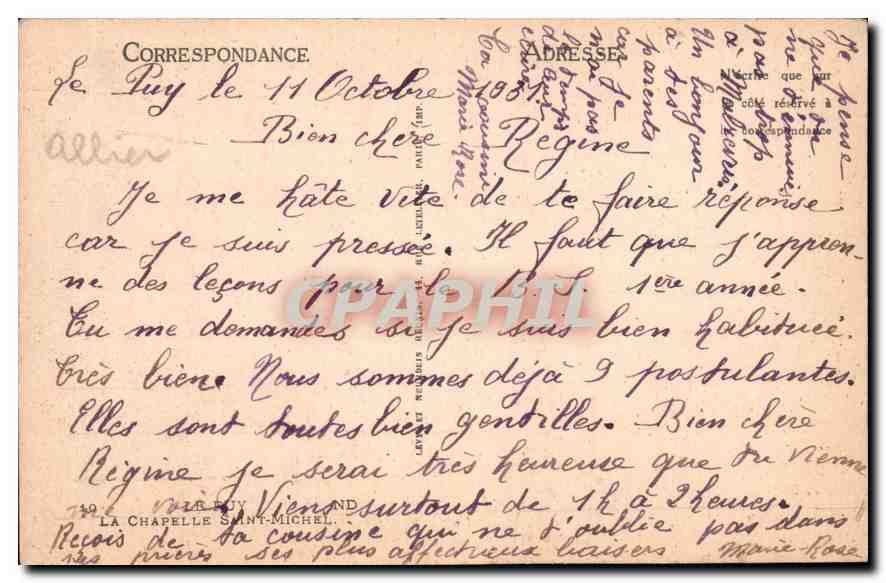 CORRESPONDANCE
ADRESSE
N'écrire que sur
le côté réservé à
la correspondance
Le Puy le 11 Octobre 1951
Bien chère Régine
allier
Je me hâte vite de te faire réponse
car je suis pressée. Il faut que j'appren-
ne des leçons pour le B.S. 1ère année.
Tu me demandes si je suis bien habituée
très bien. Nous sommes déjà 9 postulantes.
Elles sont toutes bien gentilles. Bien chère
Régine je serai très heureuse que tu vienne
me voir. Viens surtout de 1h à 2 heures.
Reçois de ta cousine qui ne t'oublie pas dans
ses prières ses plus affectueux baisers Marie-Rose
Je pense
que tu
ne t'ennuies
pas trop
à
Un bonjour
à tes
parents
car je
n'ai pas
le temps
de leur
écrire
Ta cousine
Marie Rose.
19 LE PUY ND
LA CHAPELLE SAINT-MICHEL.
LEVY ET NEURDEIN REUNIS, 44, RUE LETELLIER, PARIS IMP.
CPAPHIL